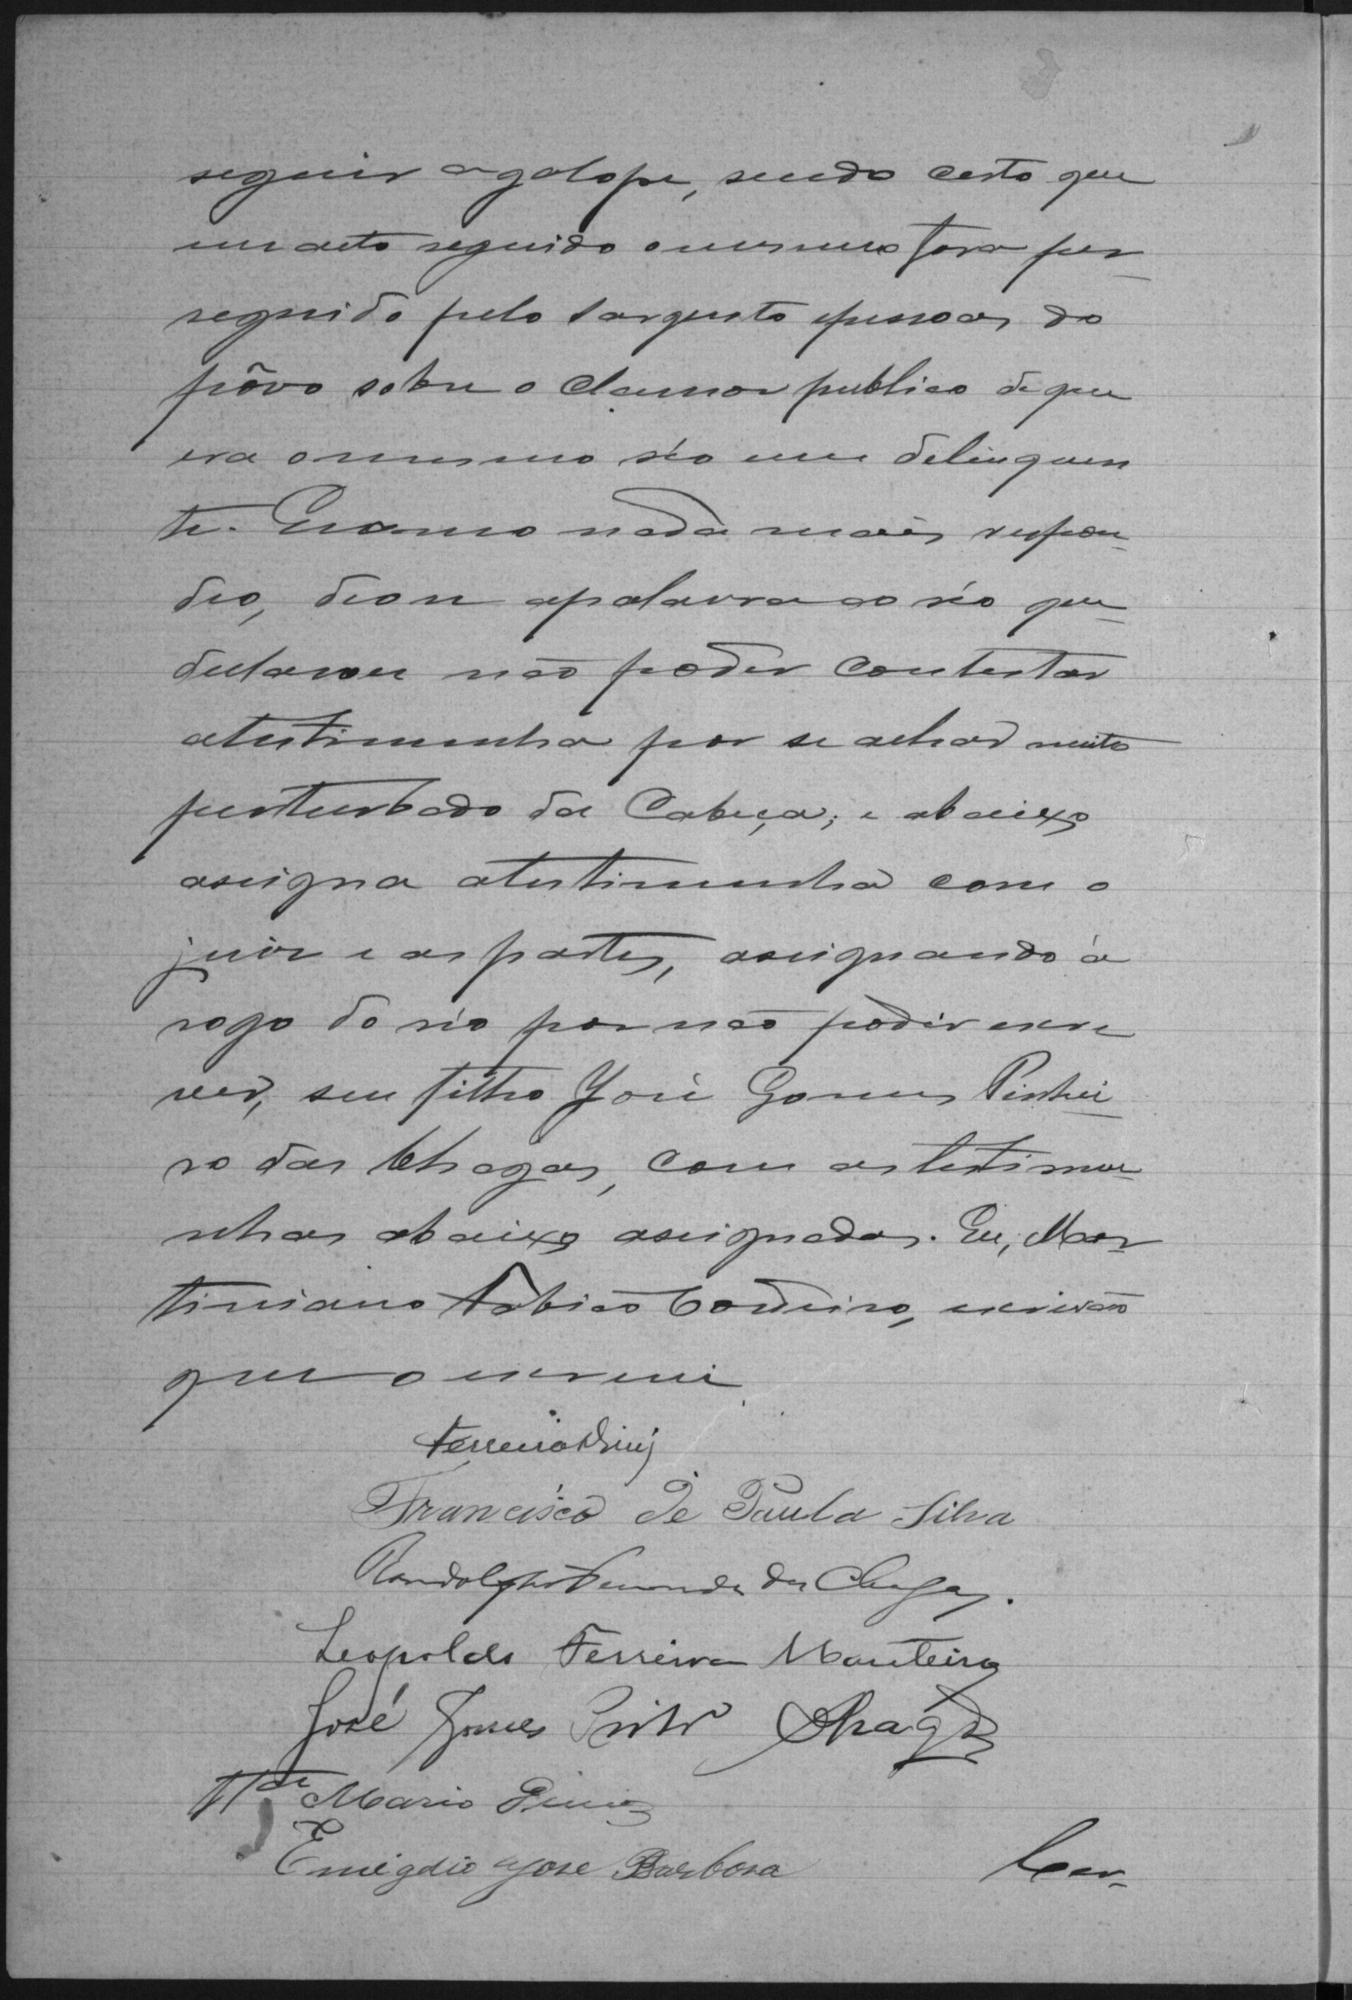 seguir a galope, sendo certo que
em acto seguido o mesmo fora per-
seguido pelo sargento e pessoas do
pôvo sobre o clamor publico de que
era o mesmo réo um delinquen
te. E como nada mais respon-
deo, deo se a palavra ao réo que
declarou não poder contestar
a testimunha por se achar muito
perturbado da Cabeça; e abaixo
assigna a testimunha com o
juiz e as partes, assignando á
rogo do réo por não poder escre
ver, seu filho José Gomes Pinhei-
ro das Chagas, com as testimu-
nhas abaixo assignadas. Eu, Mar
tiniano Fabião Cordeiro, escrivão
que o escrevi
Ferreira Diniz
Francisco de Paula Silva
Randolpho Fernandes das Chagas.
Leopoldo Ferreira Monteiro
José Gomes Pinhº Chagas
Mario
Emigdio Jose Barbosa
Cer-